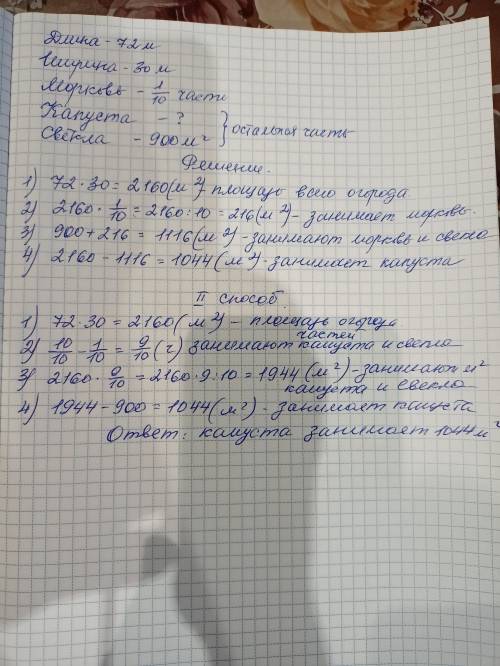 Длина - 72 м
Ширина - 30 м
Морковь - 1/10 части
Капуста - ? } остальная часть
Свёкла - 900 м²
Решение.
1) 72 · 30 = 2160 (м²) - площадь всего огорода
2) 2160 · 1/10 = 2160 : 10 = 216 (м²) - занимает морковь.
3) 900 + 216 = 1116 (м²) - занимают морковь и свекла
4) 2160 - 1116 = 1044 (м²) - занимает капуста
II способ.
1) 72 · 30 = 2160 (м²) - площадь огорода
2) 10/10 - 1/10 = 9/10 (ч) частей занимают капуста и свекла
3) 2160 · 9/10 = 2160 · 9 : 10 = 1944 (м²) - занимают м²
капуста и свекла
4) 1944 - 900 = 1044 (м²) - занимает капуста
Ответ: капуста занимает 1044 м²